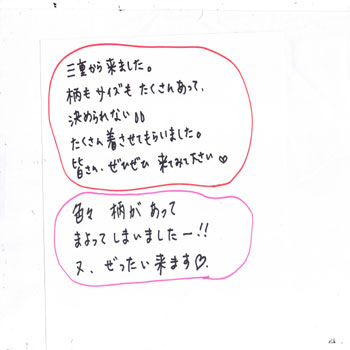 三重から来ました。
柄も サイズも たくさんあって、
決められない!!
たくさん着させてもらいました。
皆さん、ぜひぜひ 来てみて下さい♡
色々 柄が あって
まよってしまいましたー!!
又、ぜったい来ます♡.